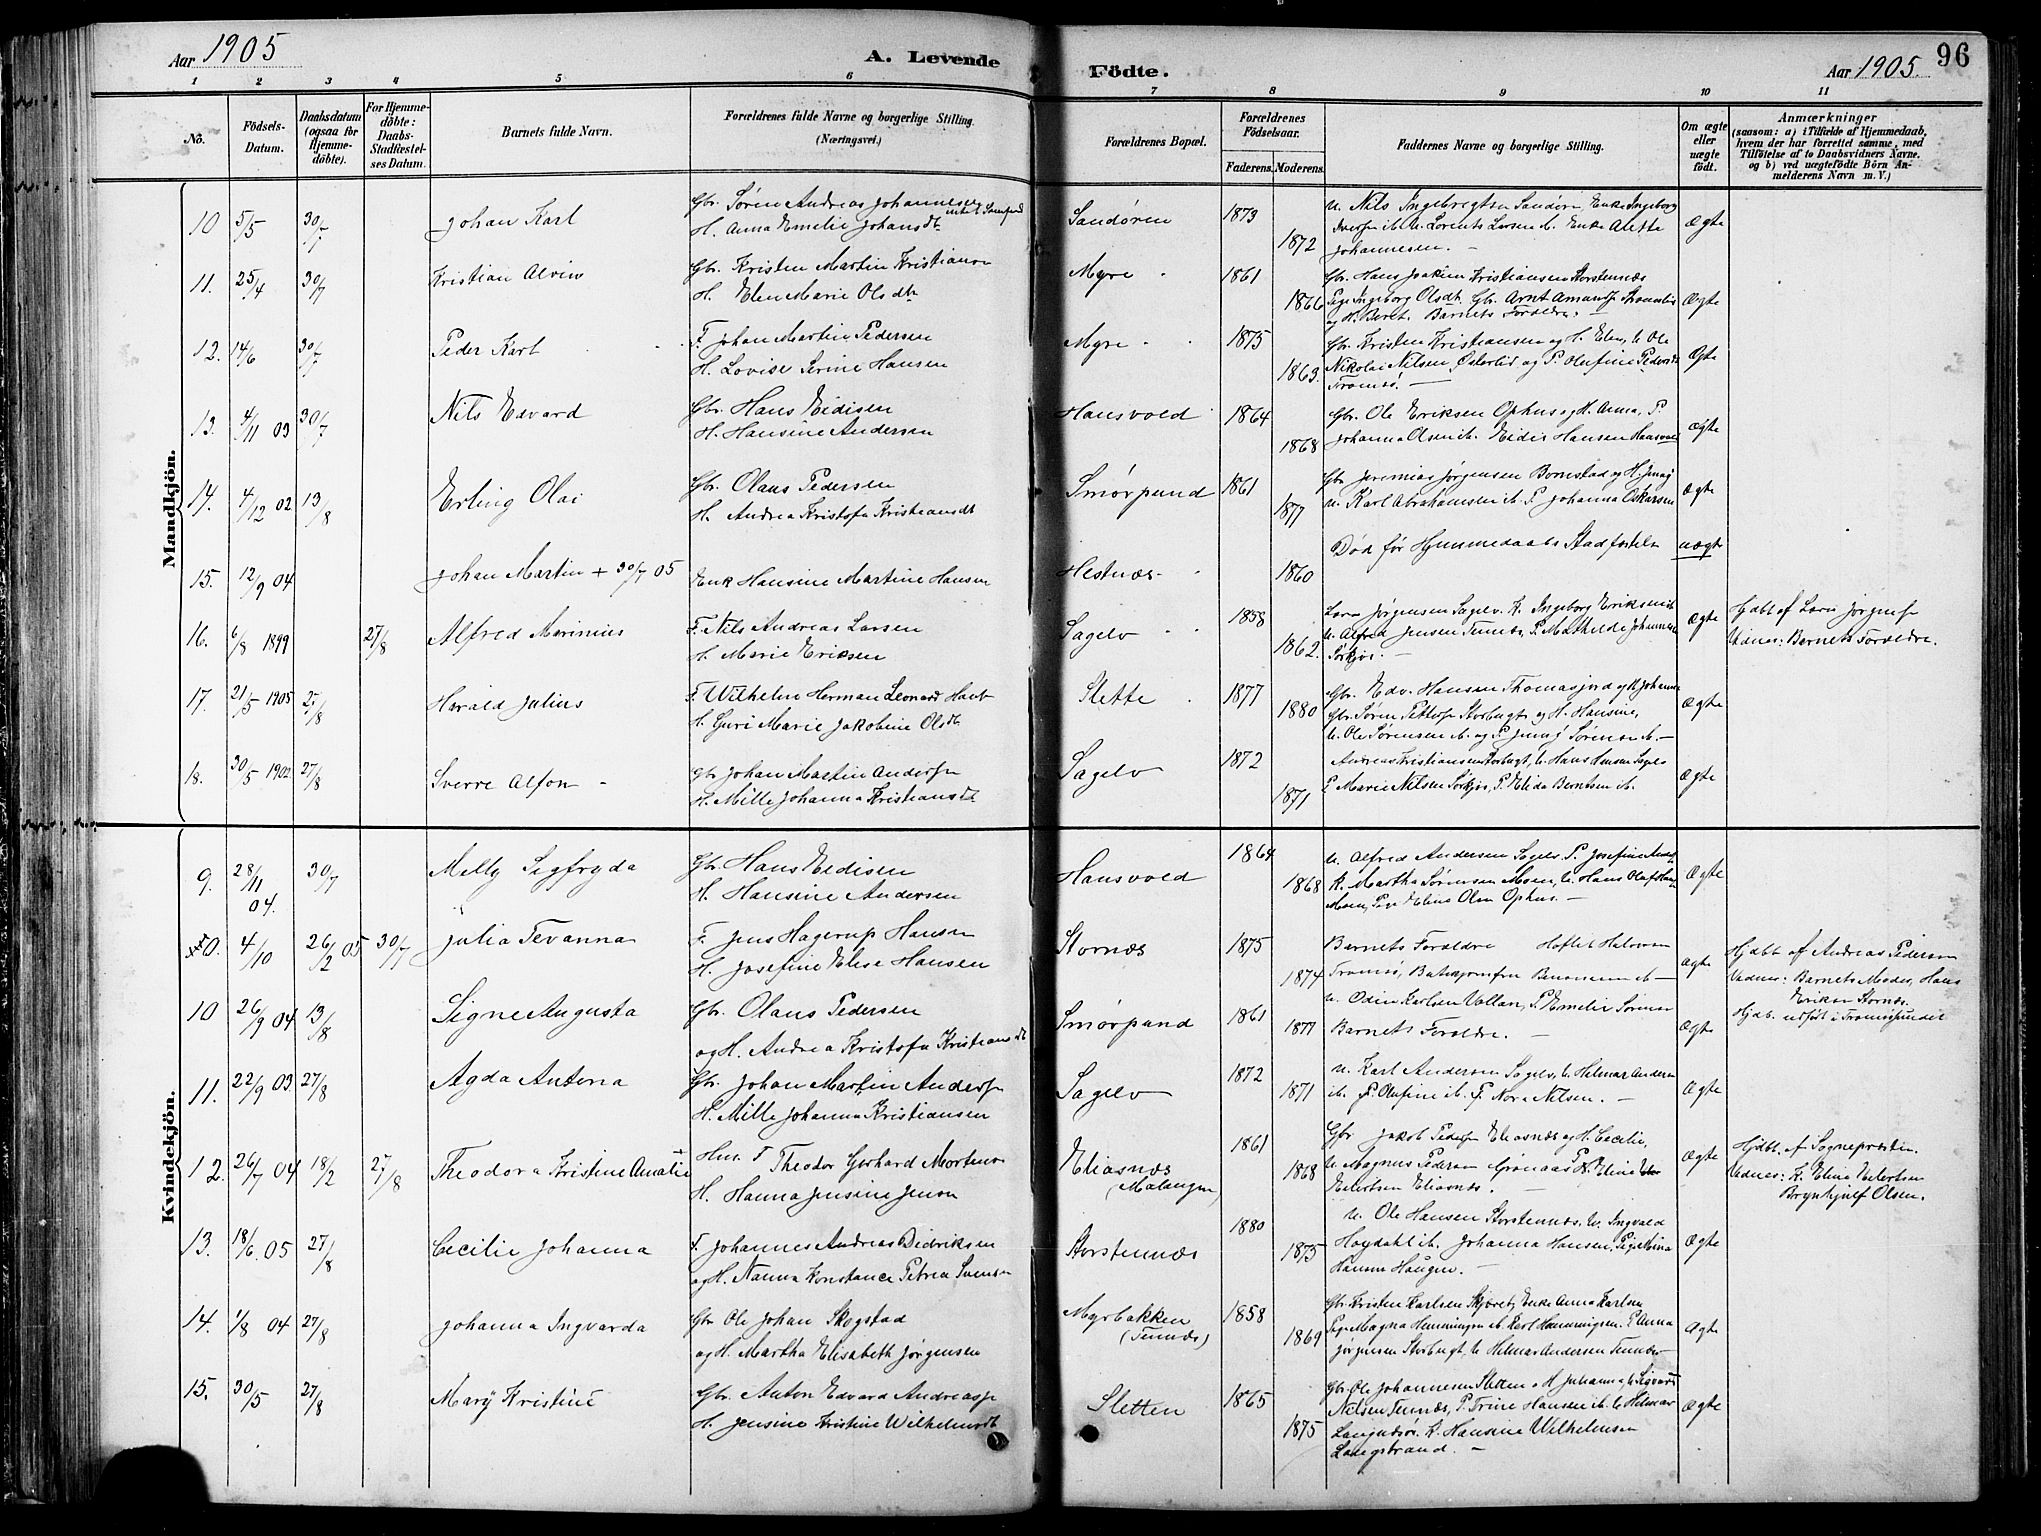 Aar 1905
A. Levende
Födte.
Aar 1905.
96
1 2 3 4 5 6 7 8 9 10 11
No.
Födsels-
Datum.
Daabsdatum
(ogsaa for
Hjemme-
döbte).
For Hjemme-
döbte:
Daabs-
Stadfæstel-
ses Datum.
Barnets fulde Navn.
Forældrenes fulde Navne og borgerlige Stilling.
(Næringsvei.)
Forældrenes Bopæl.
Forældrenes
Födselsaar.
Faderens. Moderens.
Faddernes Navne og borgerlige Stilling.
Om ægte
eller
uægte
födt.
Anmærkninger
(saasom: a) i Tilfælde af Hjemmedaab,
hvem der har forrettet samme, med
Tilföielse af to Daabsvidners Navne,
og b) ved uægtefödte Börn An-
melderens Navn m. V.)
Mandkjön.
10 5/5 30/7 Johan Karl
Gbr. Søren Andreas Johannesen
H. Anna Emelie Johansdt.
Sandøren 1873 1872
U. Nils Ingebrigtsen Sandøren, Enke Ingeborg
Iversen ib. U. Lorents Larsen ib. Enke Alette
Johannesen. —
Ægte
11. 25/4 30/7 Kristian Alvin
Gbr. Kristen Martin Kristiansen
H. Elen Marie Olsdt.
Myre 1861 1866
Gbr. Hans Joakim Kristiansen Storstennæs
Pige Ingeborg Olsdt. Gbr. Arnt Amunds.
og H. Beret. Barnets Forældre. —
Ægte
12. 14/6 30/7 Peder Karl
F. Johan Martin Pedersen
H. Lovise Serine Hansen
Myre 1875 1863.
Gbr. Kristen Kristiansen og H. Elen, U. Ole
Nikolai Nilsen, Østerlid og P. Olufine Pedersdt
Tromsø. —
Ægte
13. 4/11 03 30/7 Nils Edvard
Gbr. Hans Eidisen
H. Hansine Andersen
Hansvold 1864 1868
Gbr. Ole Eriksen Ophus og H. Anna, P.
Johanna Olsen ib. Eidis Hansen Hansvold
ægte
14. 4/12 02 13/8 Erling Olai
Gbr. Olaus Pedersen
H. Andrea Kristofa Kristiansdt
Smørpund 1861 1877
Gbr Jeremias Jørgensen Bomstad og H. Jenny
U. Karl Abrahamsen ib. P. Johanna Oskarsen
Ægte
15. 12/9 04 Johan Martin + 30/7 05
Enk Hansine Martine Hansen
Hestnæs 1860
Død før Hjemmedaabs Stadfæstelse
uægte
16. 6/8 1899 27/8 Alfred Marinius
F. Nils Andreas Larsen
H. Marie Eriksen
Sagelv 1858 1862.
Lars Jørgensen Sagelv. K. Ingeborg Eriksen ib
U. Alfred Jensen Tennæs, P. Mathilde Johannesen
Sørkjos. —
Ægte
Hjdbt af Lars Jørgens.
Vidner: Barnets Forældre.
17. 21/5 1905 27/8 Harald Julius
F. Wilhelm Herman Leonard Haub
H. Guri Marie Jakobine Olsdt.
Slette 1877 1880
Gbr. Edv. Hansen Thomasjord og H Johanna
Gbr. Søren Petters. Storbugt og H. Hansine,
U. Ole Sørensen ib. og P. Jenny Sørensen ib. —
Ægte
18. 30/5 1902 27/8 Sverre Alfon
Gbr Johan Martin Anders.
H. Mille Johanna Kristiansdt
Sagelv 1872 1871
Andreas Kristiansen Storbugt, U. Hans Hansen Sagelv
P. Marie Nilsen Sørkjos, P. Elida Berntsen ib.
Ægte
Kvindekjön.
9. 28/11 04. 30/7 Melly Sigfryda
Gbr. Hans Eidisen
H. Hansine Andersen
Hansvold 1864 1868
U. Alfred Andersen Sagelv. P. Josefine
K. Martha Sørensen Moen, U. Hans Olaf
Moen, Pige Eline Olsen Ophus. —
Ægte
4/10 26/2 05 30/7 Julia Tevanna
F. Jens Hagerup Hansen
H. Josefine Elise Hansen
Stornæs 1875 1874
Barnets Forældre
Tromsø,
ægte
Hjdbt af Andreas Pedersen
Vidner: Barnets Moder, Hans
Eriksen Stornæs.
10 26/9 04 13/8 Signe Augusta
Gbr. Olaus Pedersen
og H. Andrea Kristofa Kristiansdt
Smørpund 1861 1877
U. Odin Karlsen Vollan, P. Emelie Sørensen
Barnets Forældre. —
Ægte
Hjdb. udført i Tromsøsundet
11. 22/9 03. 27/8 Agda Antona
Gbr. Johan Martin Anders.
H. Mille Johanna Kristiansen
Sagelv 1872 1871
U. Karl Andersen Sagelv, U. Helmar Andersen
ib. P. Olufine ib. P. Nora Nilsen. —
Ægte
12. 26/7 04 18/2 27/8 Theodora Kristine Amalie
Hm. F Theodor Gerhard Mortensen
H. Hanna Jensine Jensen
Eliasnæs
(Malangen)
1861 1868
Gbr Jakob Peders. Eliasnæs og H. Cecilie,
U. Magnus Pedersen Grønaas P. Eline
Eilertsen Eliasnæs. —
Ægte
Hjdbt. af Sognepræsten.
Vidner: K. Eline Eilertsen
Brynhjulf Olsen.
13. 18/6 05 27/8 Cecilie Johanna
F. Johannes Andreas Didriksen
og H. Nanna Konstance Petrea Svensen
Storstennæs 1880 1875
U. Ole Hansen Storstennæs, U. Ingvald
Høydahl ib. Johanna Hansen, Pige Mina
Hansen Haugen. —
Ægte
14. 1/8 04 27/8 Johanna Ingvarda
Gbr Ole Johan Skogstad
og H. Martha Elisabeth Jørgensen
Myrbakken
(Tennæs)
1858 1869
Gbr. Kristen Karlsen Skjæret, Enke Anna Karlsen
Pige Magna Henningsen ib. Karl Henningsen. P. Anna
Jørgensen Storbugt, U. Helmar Andersen Tennes —
Ægte
15. 30/5 27/8 Mary Kristine
Gbr. Anton Edvard Andreass.
H. Jensine Kristine Wilhelmsdt
Sletten 1865 1875
Gbr. Ole Johannesen Sletten o H Johanna U Sigvart
Nilsen Tennæs, P. Trine Hansen ib. U. Helmer
K. Hansine Wilhelmsen
Langstrand. —
Ægte